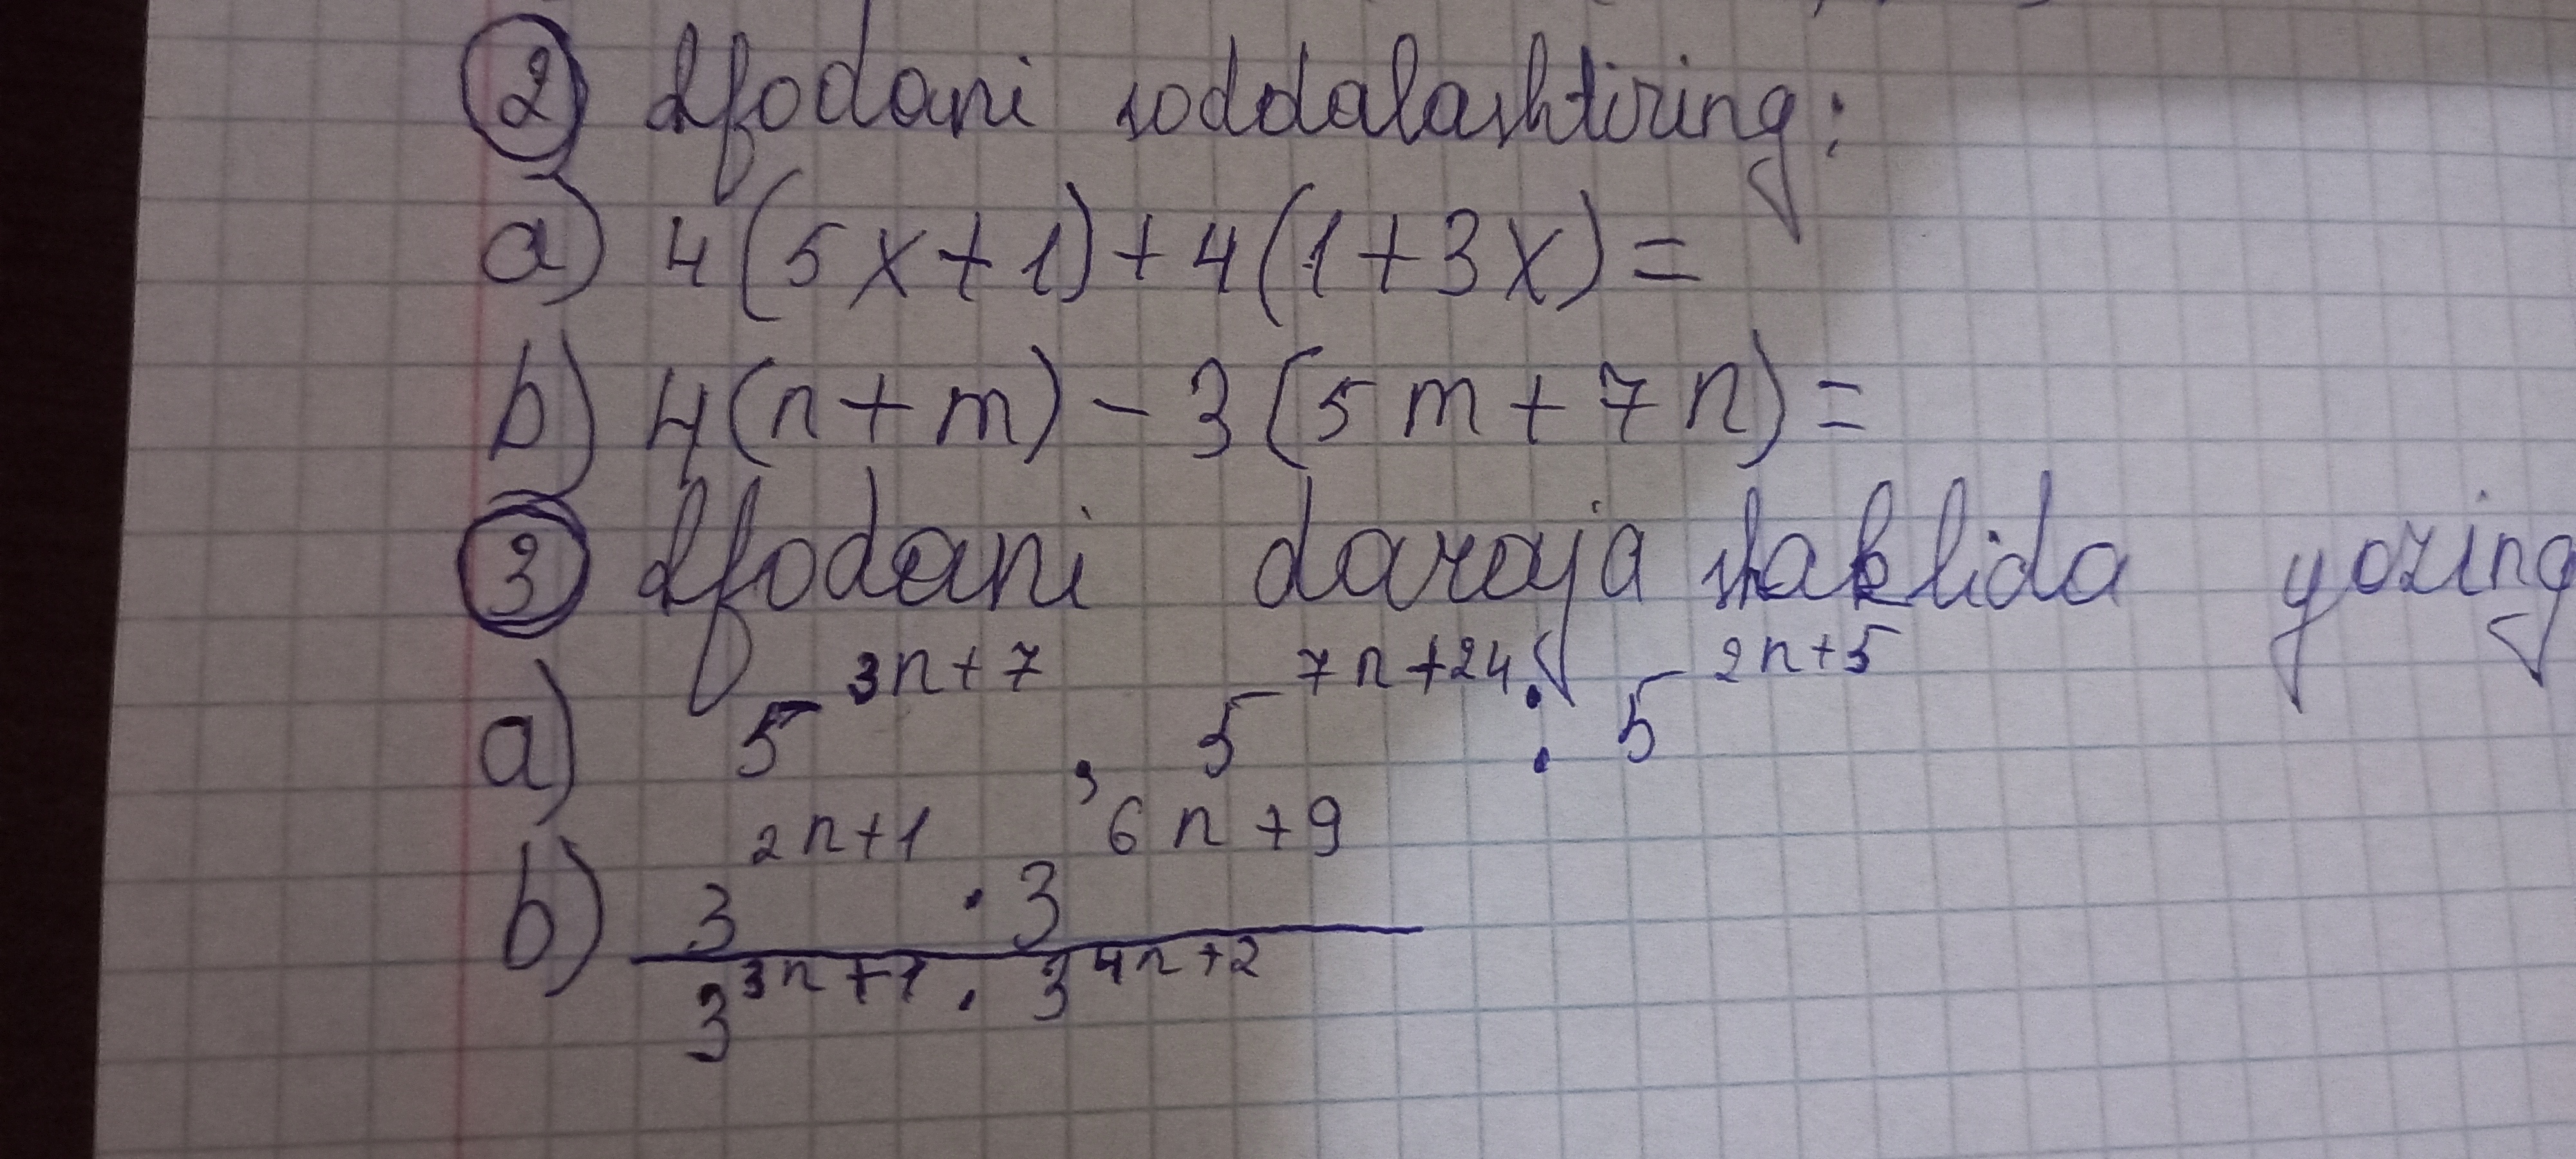 2 Ifodani soddalashtiring:
a) 4(5x+1)+4(1+3x)=
b) 4(n+m)-3(5m+7n)=
3 Ifodani daraja shaklida yozing
a) 5^{3n+7}, 5^{7n+24} : 5^{2n+5}
b) \frac{3^{2n+1} · 3^{6n+9}}{3^{3n+7} · 3^{4n+2}}